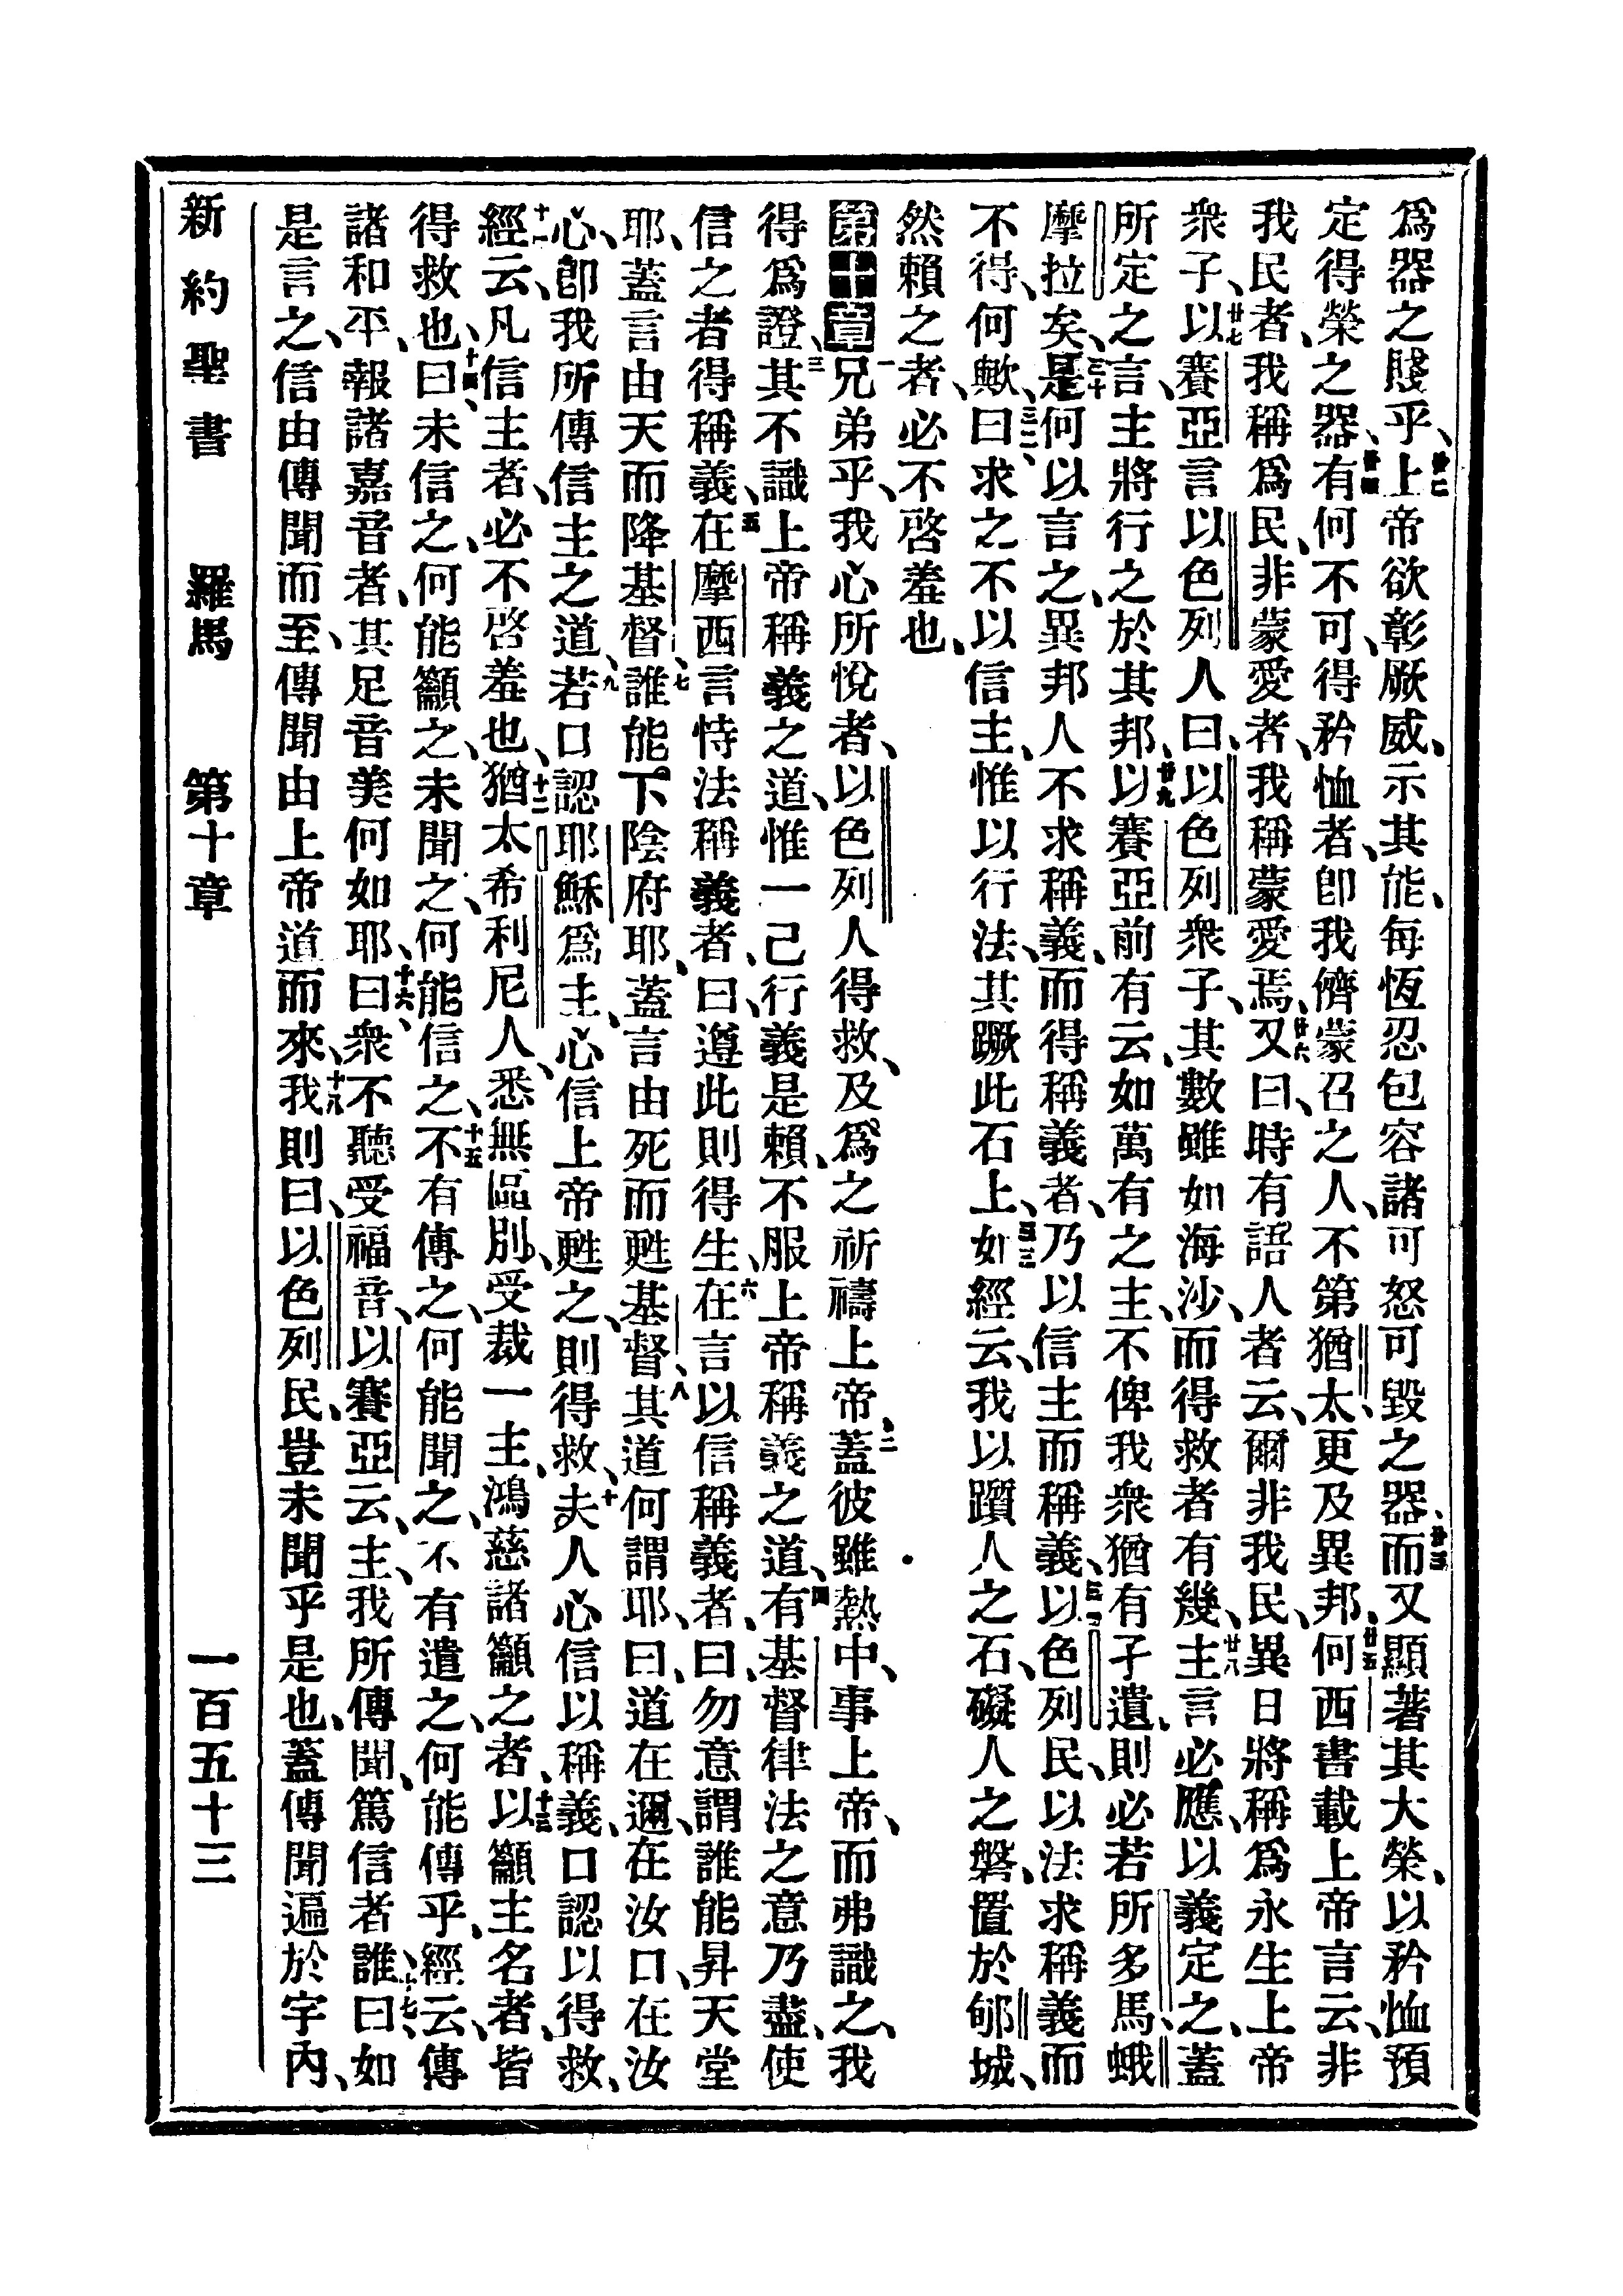 爲器之賤乎、廿二上帝欲彰厥威、示其能、每恆忍包容諸可怒可毀之器、廿三而又顯著其大榮、以矜恤預
定得榮之器、廿四有何不可、得矜恤者、卽我儕蒙召之人、不第猶太、更及異邦、廿五何西書載上帝言云、非
我民者、我稱爲民、非蒙愛者、我稱蒙愛焉、廿六又曰、時有語人者云、爾非我民、異日將稱爲永生上帝
衆子、廿七以賽亞言以色列人曰、以色列衆子、其數雖如海沙、而得救者有幾、廿八主言必應、以義定之、蓋
所定之言、主將行之、於其邦、廿九以賽亞前有云、如萬有之主、不俾我衆猶有孑遺、則必若所多馬、蛾
摩拉矣、三十是何以言之、異邦人不求稱義、而得稱義者、乃以信主而稱義、三一以色列民、以法求稱義而
不得、何歟、三二曰、求之不以信主、惟以行法、其蹶此石上、三三如經云、我以躓人之石、礙人之磐、置於郇城、
然賴之者、必不啓羞也、
第十章一兄弟乎、我心所悅者、以色列人得救、及爲之祈禱上帝、二蓋彼雖熱中、事上帝、而弗識之、我
得爲證、三其不識上帝稱義之道、惟一己行義是賴、不服上帝稱義之道、四有基督律法之意乃盡、使
信之者得稱義、五在摩西言恃法稱義者、曰、遵此則得生、六在言以信稱義者、曰、勿意謂誰能昇天堂
耶、蓋言由天而降基督、七誰能下陰府耶、蓋言由死而甦基督、八其道何謂耶、曰、道在邇、在汝口、在汝
心、卽我所傳信主之道、九若口認耶穌爲主、心信上帝甦之、則得救、十夫人心信以稱義、口認以得救、
十一經云、凡信主者、必不啓羞也、十二猶太希利尼人、悉無區別、受裁一主、鴻慈諸籲之者、十三以籲主名者、皆
得救也、十四曰、未信之、何能籲之、未聞之、何能信之、不十五有傳之、何能聞之、不有遣之、何能傳乎、經云、傳
諸和平、報諸嘉音者、其足音美何如耶、十六曰、衆不聽受福音、以賽亞云、主、我所傳聞、篤信者誰、十七曰、如
是言之、信由傳聞而至、傳聞由上帝道而來、十八我則曰、以色列民、豈未聞乎、是也、蓋傳聞遍於宇內、
新約聖書 羅馬 第十章 一百五十三